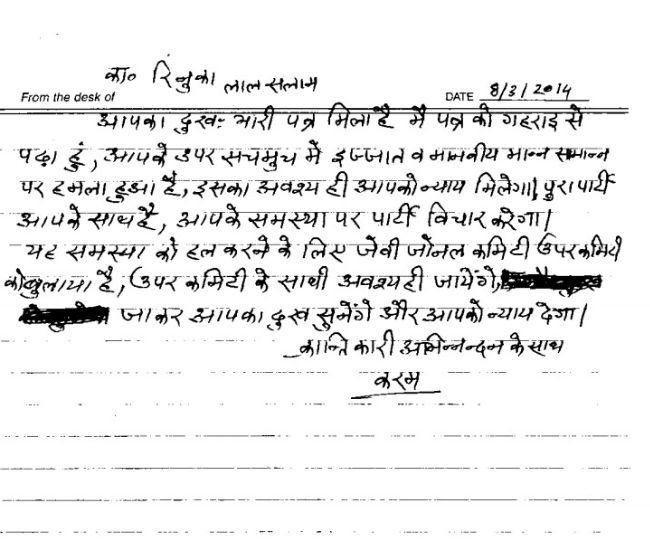 का० रिनुका लाल सलाम
From the desk of DATE 8/3/2014
आपका दुखः भारी पत्र मिला है मै पत्र को गहराई से
पढ़ा हुं, आपके उपर सचमुच में इज्जात व मानवीय मान्न समान्न
पर हमला हुआ है, इसका अवश्य ही आपको न्याय मिलेगा। पुरा पार्टी
आपके साथ है, आपके समस्या पर पार्टी विचार करेगा।
यह समस्या को हल करने के लिए जेवी जोनल कमिटी उपर कमिटी
को बुलाया है, उपर कमिटी के साथी अवश्य ही जायेंगे,
जाकर आपका दुख सुनेंगे और आपको न्याय देगा।
क्रान्तिकारी अभिन्नन्दन के साथ
करम